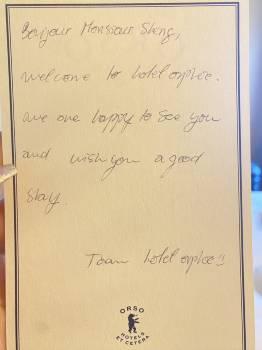 Bonjour Monsieur Sheng,
welcome to hotel orphée.
we are happy to see you
and wish you a good
stay.
Team hotel orphée !!
ORSO
HOTELS
ET CETERA